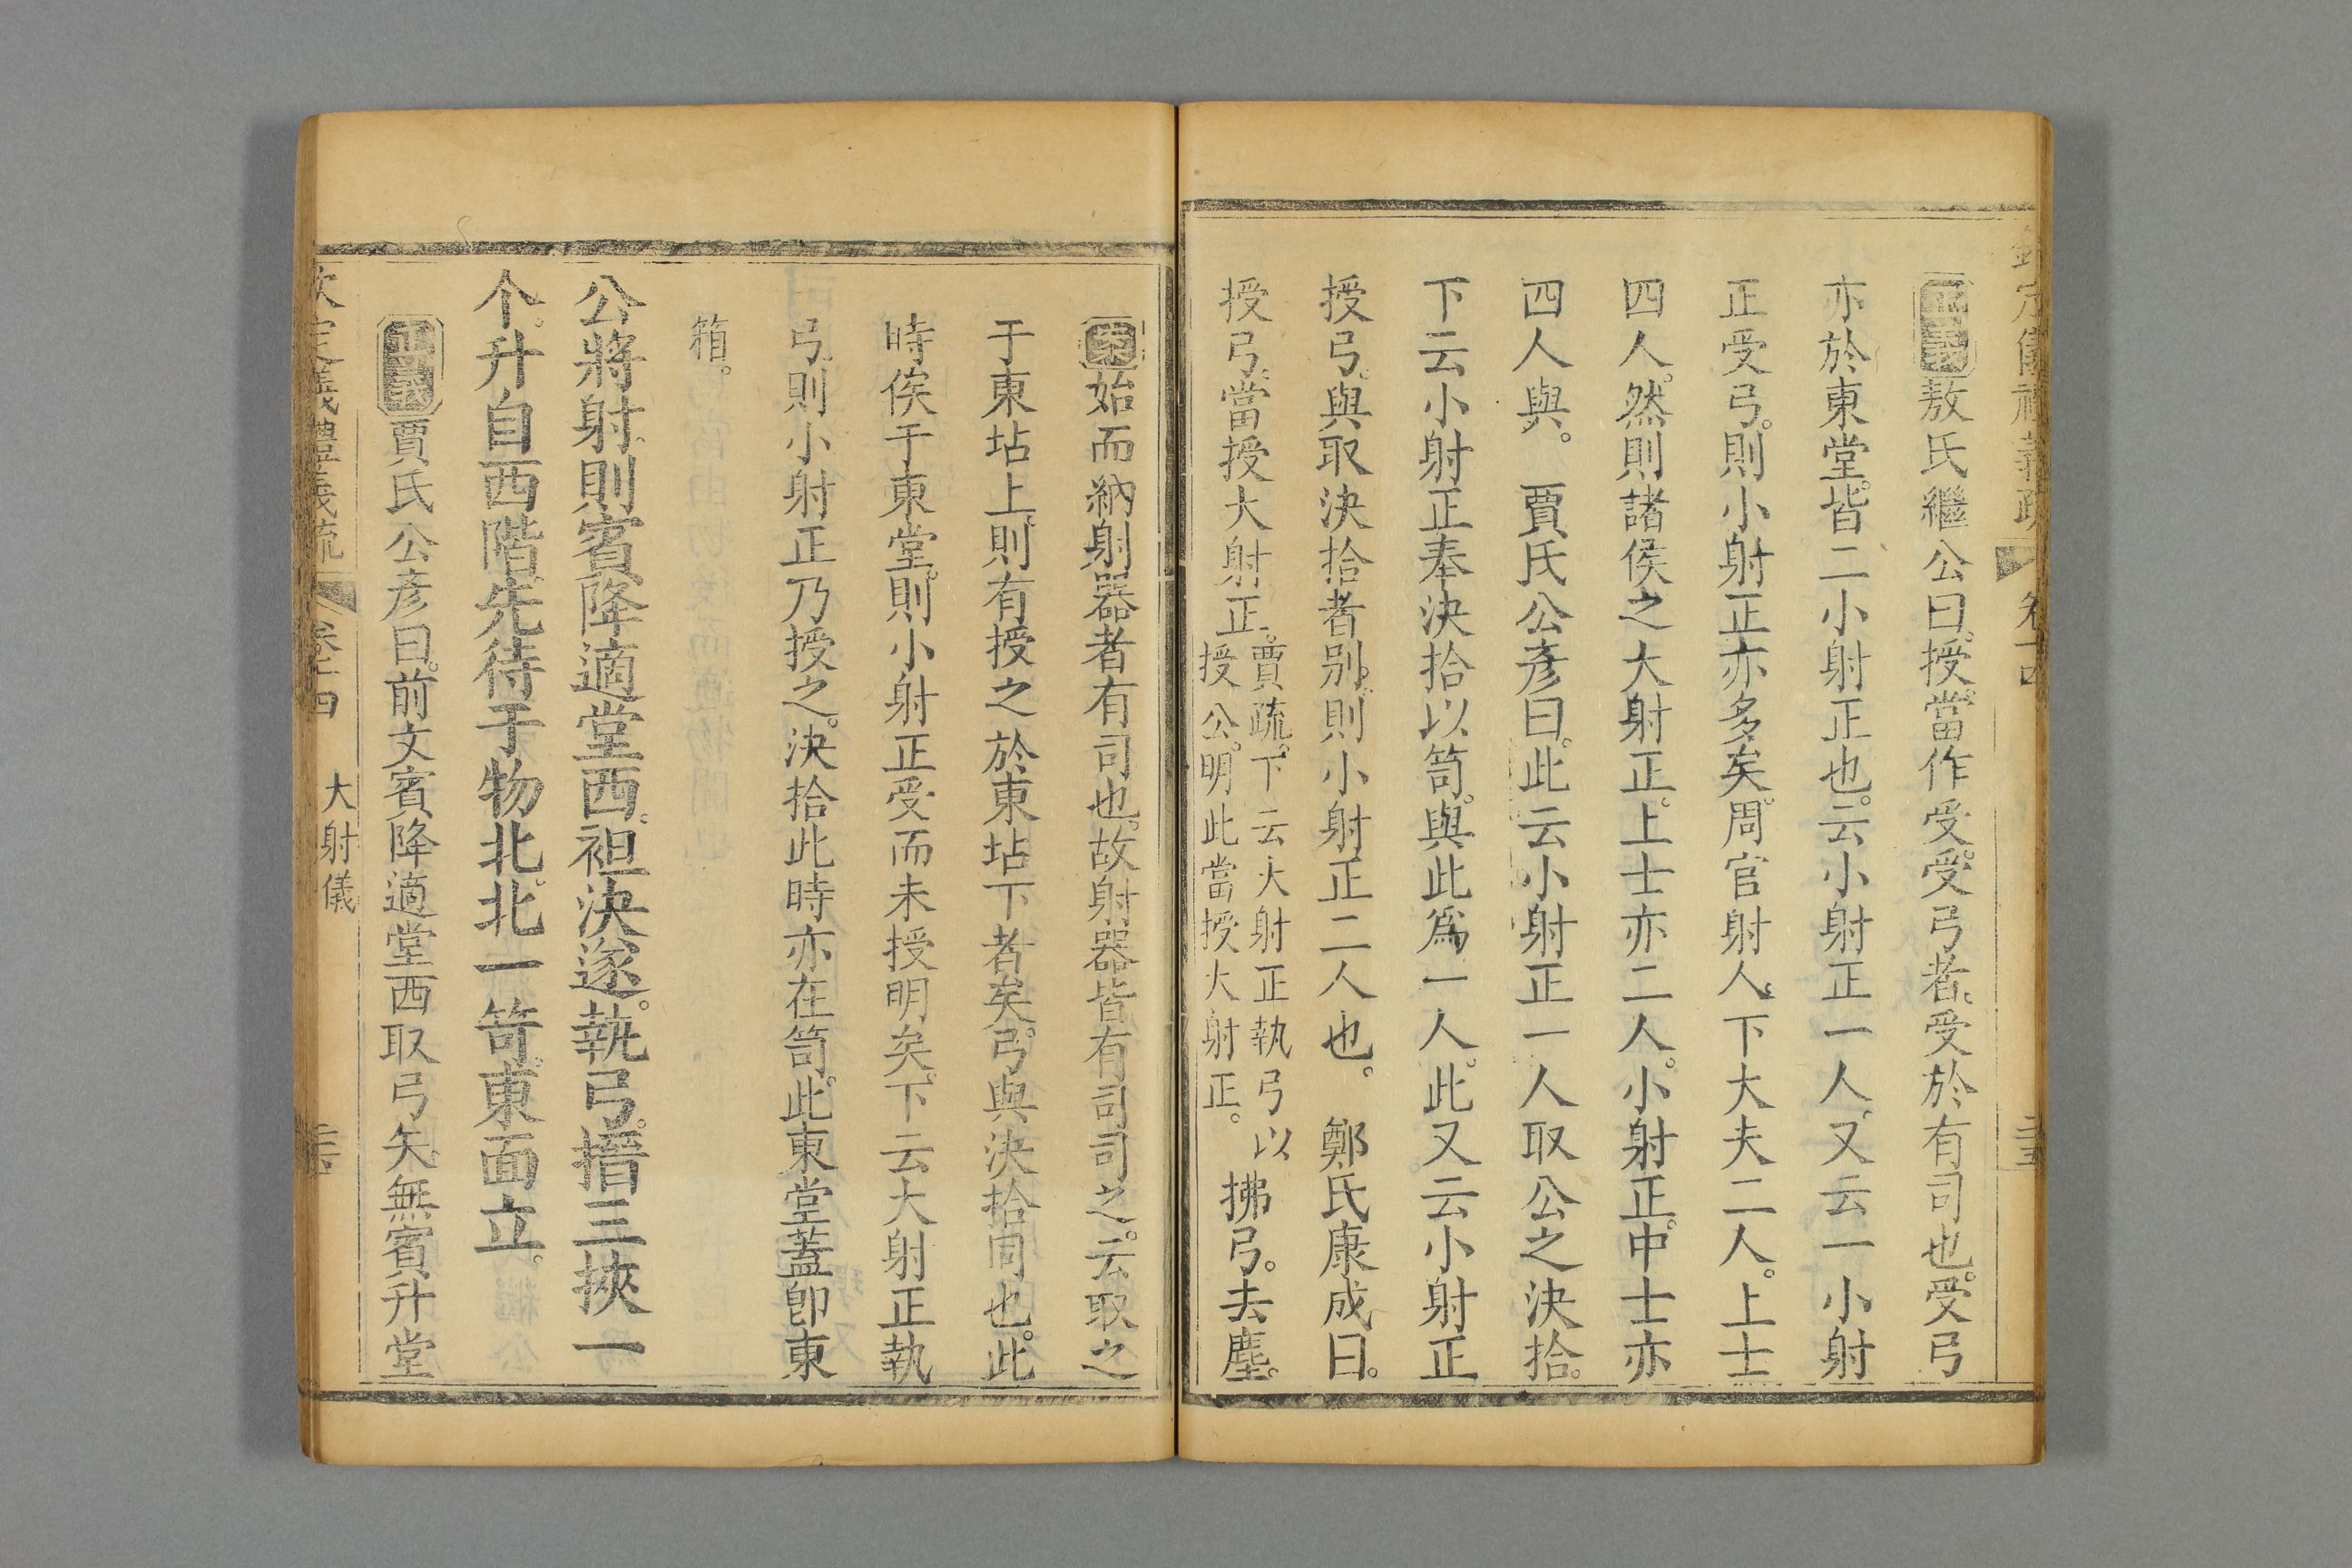 欽定儀禮義疏 卷十四 三五
正義敖氏繼公曰。授。當作受。受弓者。受於有司也。受弓
亦於東堂。皆二小射正也。云小射正一人。又云一小射
正受弓。則小射正亦多矣。周官射人。下大夫二人。上士
四人。然則諸侯之大射正。上士亦二人。小射正。中士亦
四人與。 賈氏公彥曰。此云小射正一人取公之決拾。
下云小射正奉決拾以笥。與此爲一人。此又云小射正
授弓。與取決拾者别。則小射正二人也。 鄭氏康成曰。
授弓。當授大射正。賈疏。下云大射正執弓以
授公。明此當授大射正。拂弓。去塵。
案始而納射器者有司也。故射器皆有司司之。云取之
于東坫上。則有授之於東坫下者矣。弓與決拾同也。此
時俟于東堂。則小射正受而未授明矣。下云大射正執
弓。則小射正乃授之。決拾此時亦在笥。此東堂蓋卽東
箱。
公將射。則賓降適堂西。袒決遂。執弓。搢三挾一
个。升自西階。先待于物北。北一笴。東面立。
正義賈氏公彥曰。前文賓降適堂西取弓矢。無賓升堂
欽定儀禮義疏 卷十四 大射儀